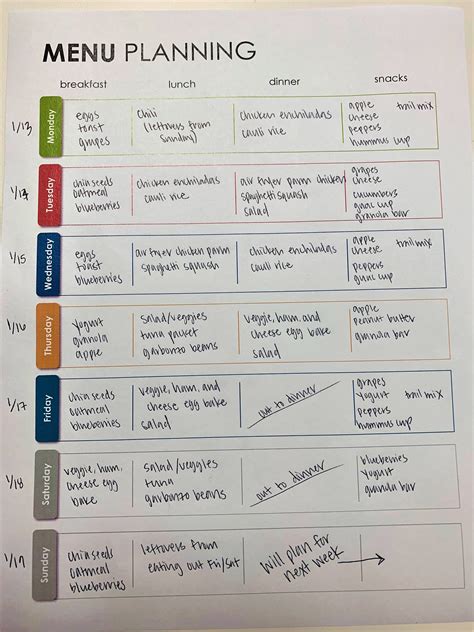 MENU PLANNING
breakfast lunch dinner snacks
1/13
Monday
eggs
toast
grapes
chili
(leftovers from
Sunday)
chicken enchiladas
cauli rice
apple trail mix
cheese
peppers
hummus cup
Tuesday
chia seeds
oatmeal
blueberries
chicken enchiladas
cauli rice
air fryer parm chicken
spaghetti squash
salad
grapes
cheese
cucumbers
guac cup
granola bar
1/15
Wednesday
eggs
toast
blueberries
air fryer chicken parm
spaghetti squash
chicken enchiladas
cauli rice
apple trail mix
cheese
peppers
guac cup
1/16
Thursday
yogurt
granola
apple
salad/veggies
tuna packet
garbonzo beans
veggie, ham, and
cheese egg bake
salad
apple
peanut butter
granola bar
1/17
Friday
chia seeds
oatmeal
blueberries
veggie, ham, and
cheese egg bake
salad
out to dinner
grapes
yogurt trail mix
peppers
hummus cup
1/18
Saturday
veggie, ham,
cheese egg
bake
salad/veggies
tuna
garbonzo beans
out to dinner
blueberries
yogurt
granola bar
Sunday
chia seeds
oatmeal
blueberries
leftovers from
eating out Fri/Sat
will plan for
next week